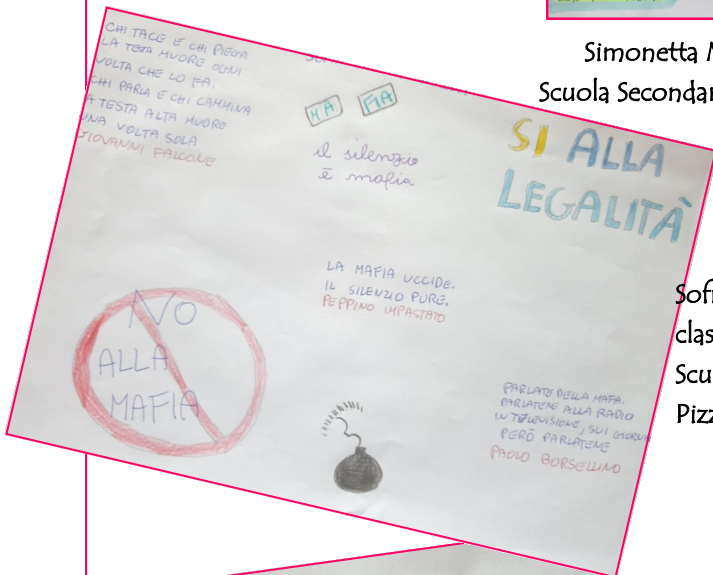 CHI TACE E CHI PIEGA
LA TESTA MUORE OGNI
VOLTA CHE LO FA,
CHI PARLA E CHI CAMMINA
A TESTA ALTA MUORE
UNA VOLTA SOLA
GIOVANNI FALCONE
MA FIA
il silenzio
è mafia
SI ALLA
LEGALITÀ
LA MAFIA UCCIDE.
IL SILENZIO PURE.
PEPPINO IMPASTATO
NO
ALLA
MAFIA
PARLATE DELLA MAFIA.
PARLATENE ALLA RADIO
IN TELEVISIONE, SUI GIORNALI
PERÒ PARLATENE
PAOLO BORSELLINO
Simonetta
Scuola
clas
Pizz